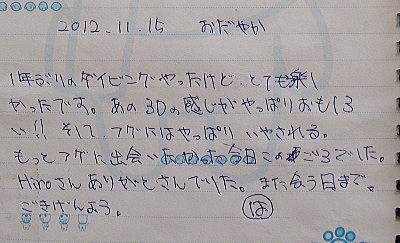 2012.11.15 おだやか
1年ぶりのダイビングやったけど、とても楽し
かったです。あの3Dの感じがやっぱりおもしろ
い!! そして、フグにはやっぱり いやされる。
もっとフグに出会い 今日このごろでした。
Hiroさん ありがとさんでした。また会う日まで。
ごきげんよう。 は